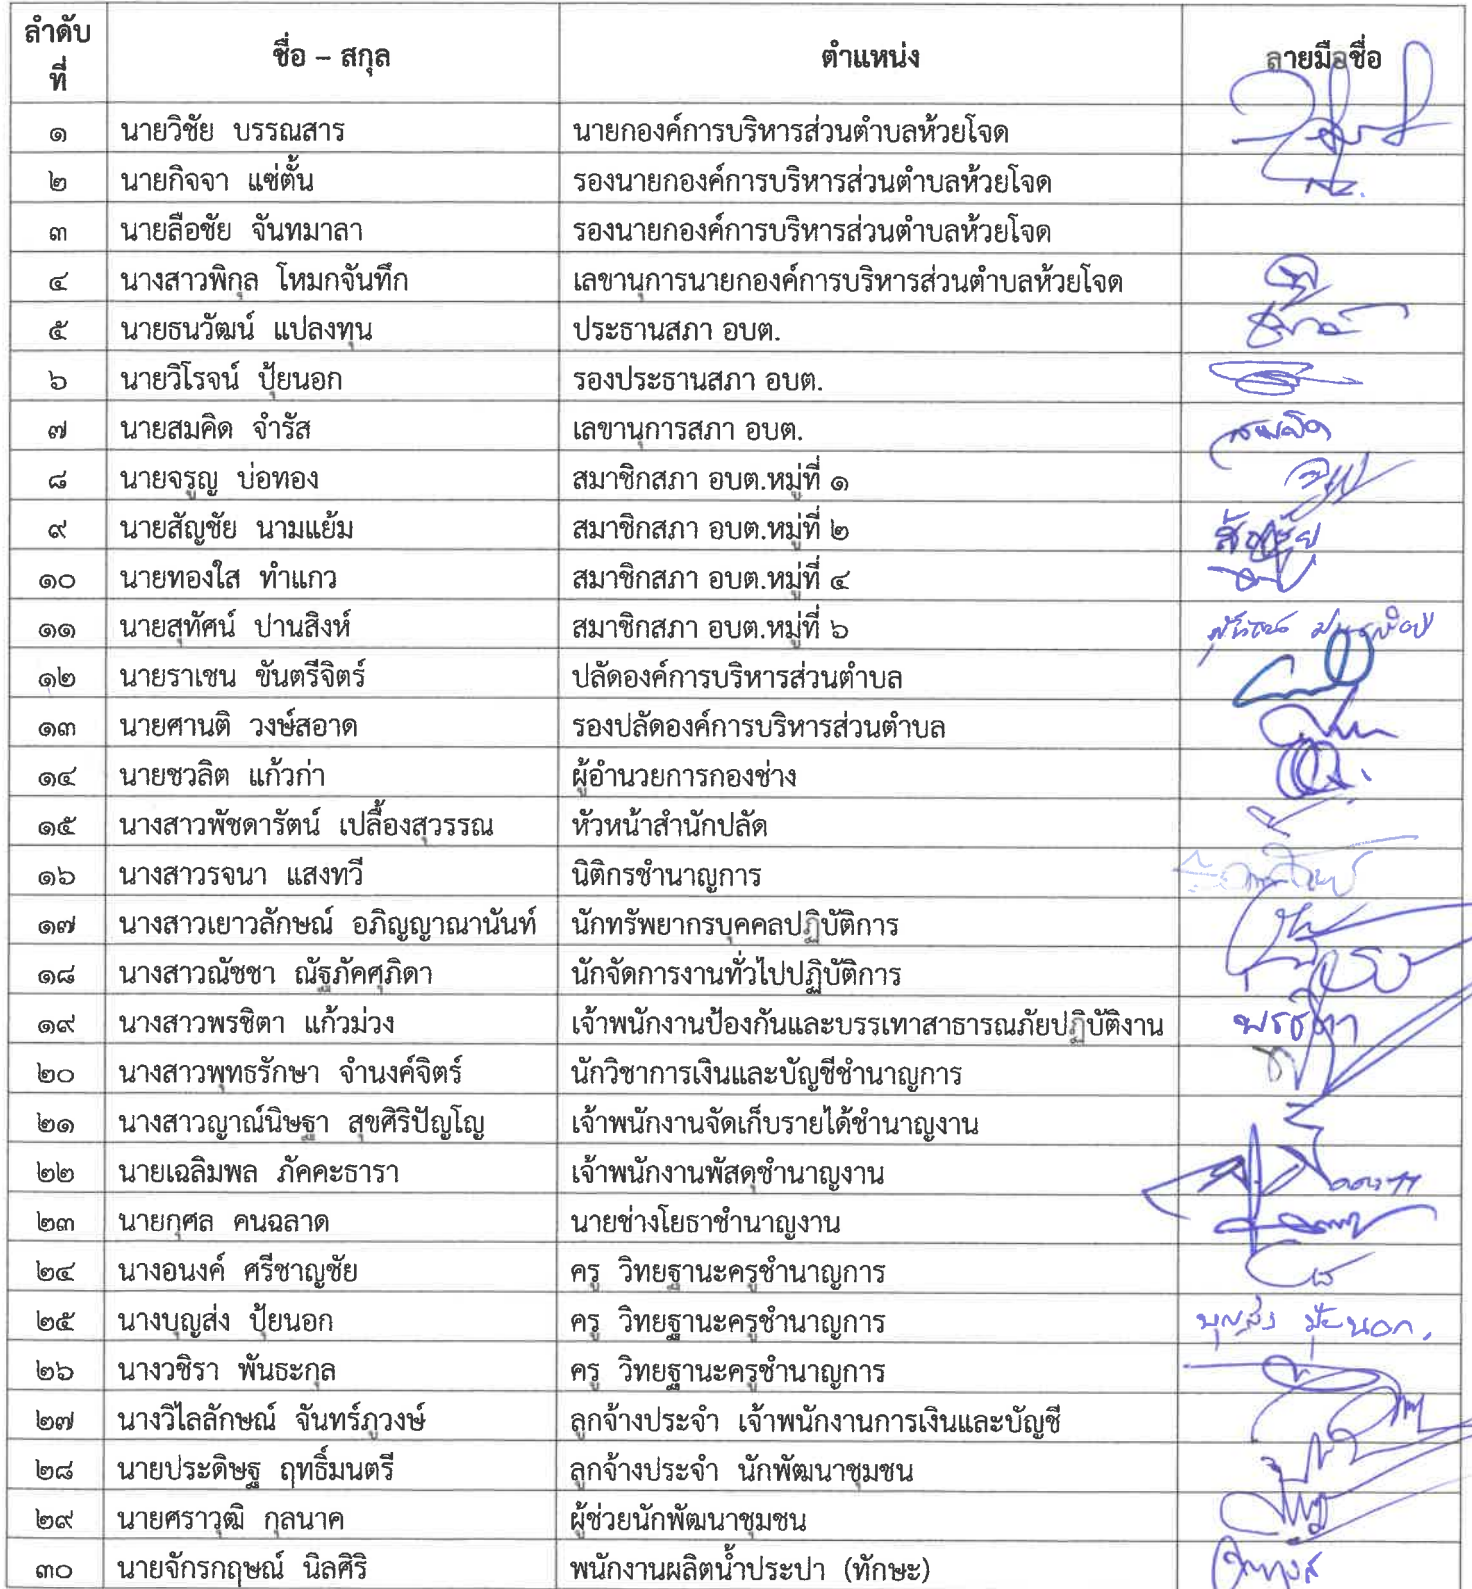 ลำดับ
ที่
ชื่อ – สกุล ตำแหน่ง ลายมือชื่อ
๑ นายวิชัย บรรณสาร นายกองค์การบริหารส่วนตำบลห้วยโจด
๒ นายกิจจา แซ่ตั้น รองนายกองค์การบริหารส่วนตำบลห้วยโจด
๓ นายลือชัย จันทมาลา รองนายกองค์การบริหารส่วนตำบลห้วยโจด
๔ นางสาวพิกุล โหมกจันทึก เลขานุการนายกองค์การบริหารส่วนตำบลห้วยโจด
๕ นายธนวัฒน์ แปลงทุน ประธานสภา อบต.
๖ นายวิโรจน์ ปุ้ยนอก รองประธานสภา อบต.
๗ นายสมคิด จำรัส เลขานุการสภา อบต. สมคิด
๘ นายจรูญ บ่อทอง สมาชิกสภา อบต.หมู่ที่ ๑
๙ นายสัญชัย นามแย้ม สมาชิกสภา อบต.หมู่ที่ ๒ สัญชัย
๑๐ นายทองใส ทำแกว สมาชิกสภา อบต.หมู่ที่ ๔
๑๑ นายสุทัศน์ ปานสิงห์ สมาชิกสภา อบต.หมู่ที่ ๖
๑๒ นายราเชน ขันตรีจิตร์ ปลัดองค์การบริหารส่วนตำบล
๑๓ นายศานติ วงษ์สอาด รองปลัดองค์การบริหารส่วนตำบล
๑๔ นายชวลิต แก้วก่า ผู้อำนวยการกองช่าง
๑๕ นางสาวพัชดารัตน์ เปลื้องสุวรรณ หัวหน้าสำนักปลัด
๑๖ นางสาวรจนา แสงทวี นิติกรชำนาญการ
๑๗ นางสาวเยาวลักษณ์ อภิญญาณานันท์ นักทรัพยากรบุคคลปฏิบัติการ
๑๘ นางสาวณัชชา ณัฐภัคศุภิดา นักจัดการงานทั่วไปปฏิบัติการ
๑๙ นางสาวพรชิตา แก้วม่วง เจ้าพนักงานป้องกันและบรรเทาสาธารณภัยปฏิบัติงาน พรชิตา
๒๐ นางสาวพุทธรักษา จำนงค์จิตร์ นักวิชาการเงินและบัญชีชำนาญการ
๒๑ นางสาวญาณ์นิษฐา สุขศิริปัญโญ เจ้าพนักงานจัดเก็บรายได้ชำนาญงาน
๒๒ นายเฉลิมพล ภัคคะธารา เจ้าพนักงานพัสดุชำนาญงาน
๒๓ นายกุศล คนฉลาด นายช่างโยธาชำนาญงาน
๒๔ นางอนงค์ ศรีชาญชัย ครู วิทยฐานะครูชำนาญการ
๒๕ นางบุญส่ง ปุ้ยนอก ครู วิทยฐานะครูชำนาญการ บุญส่ง ปุ้ยนอก.
๒๖ นางวชิรา พันธะกุล ครู วิทยฐานะครูชำนาญการ
๒๗ นางวิไลลักษณ์ จันทร์ภูวงษ์ ลูกจ้างประจำ เจ้าพนักงานการเงินและบัญชี
๒๘ นายประดิษฐ ฤทธิ์มนตรี ลูกจ้างประจำ นักพัฒนาชุมชน
๒๙ นายศราวุฒิ กุลนาค ผู้ช่วยนักพัฒนาชุมชน
๓๐ นายจักรกฤษณ์ นิลศิริ พนักงานผลิตน้ำประปา (ทักษะ)